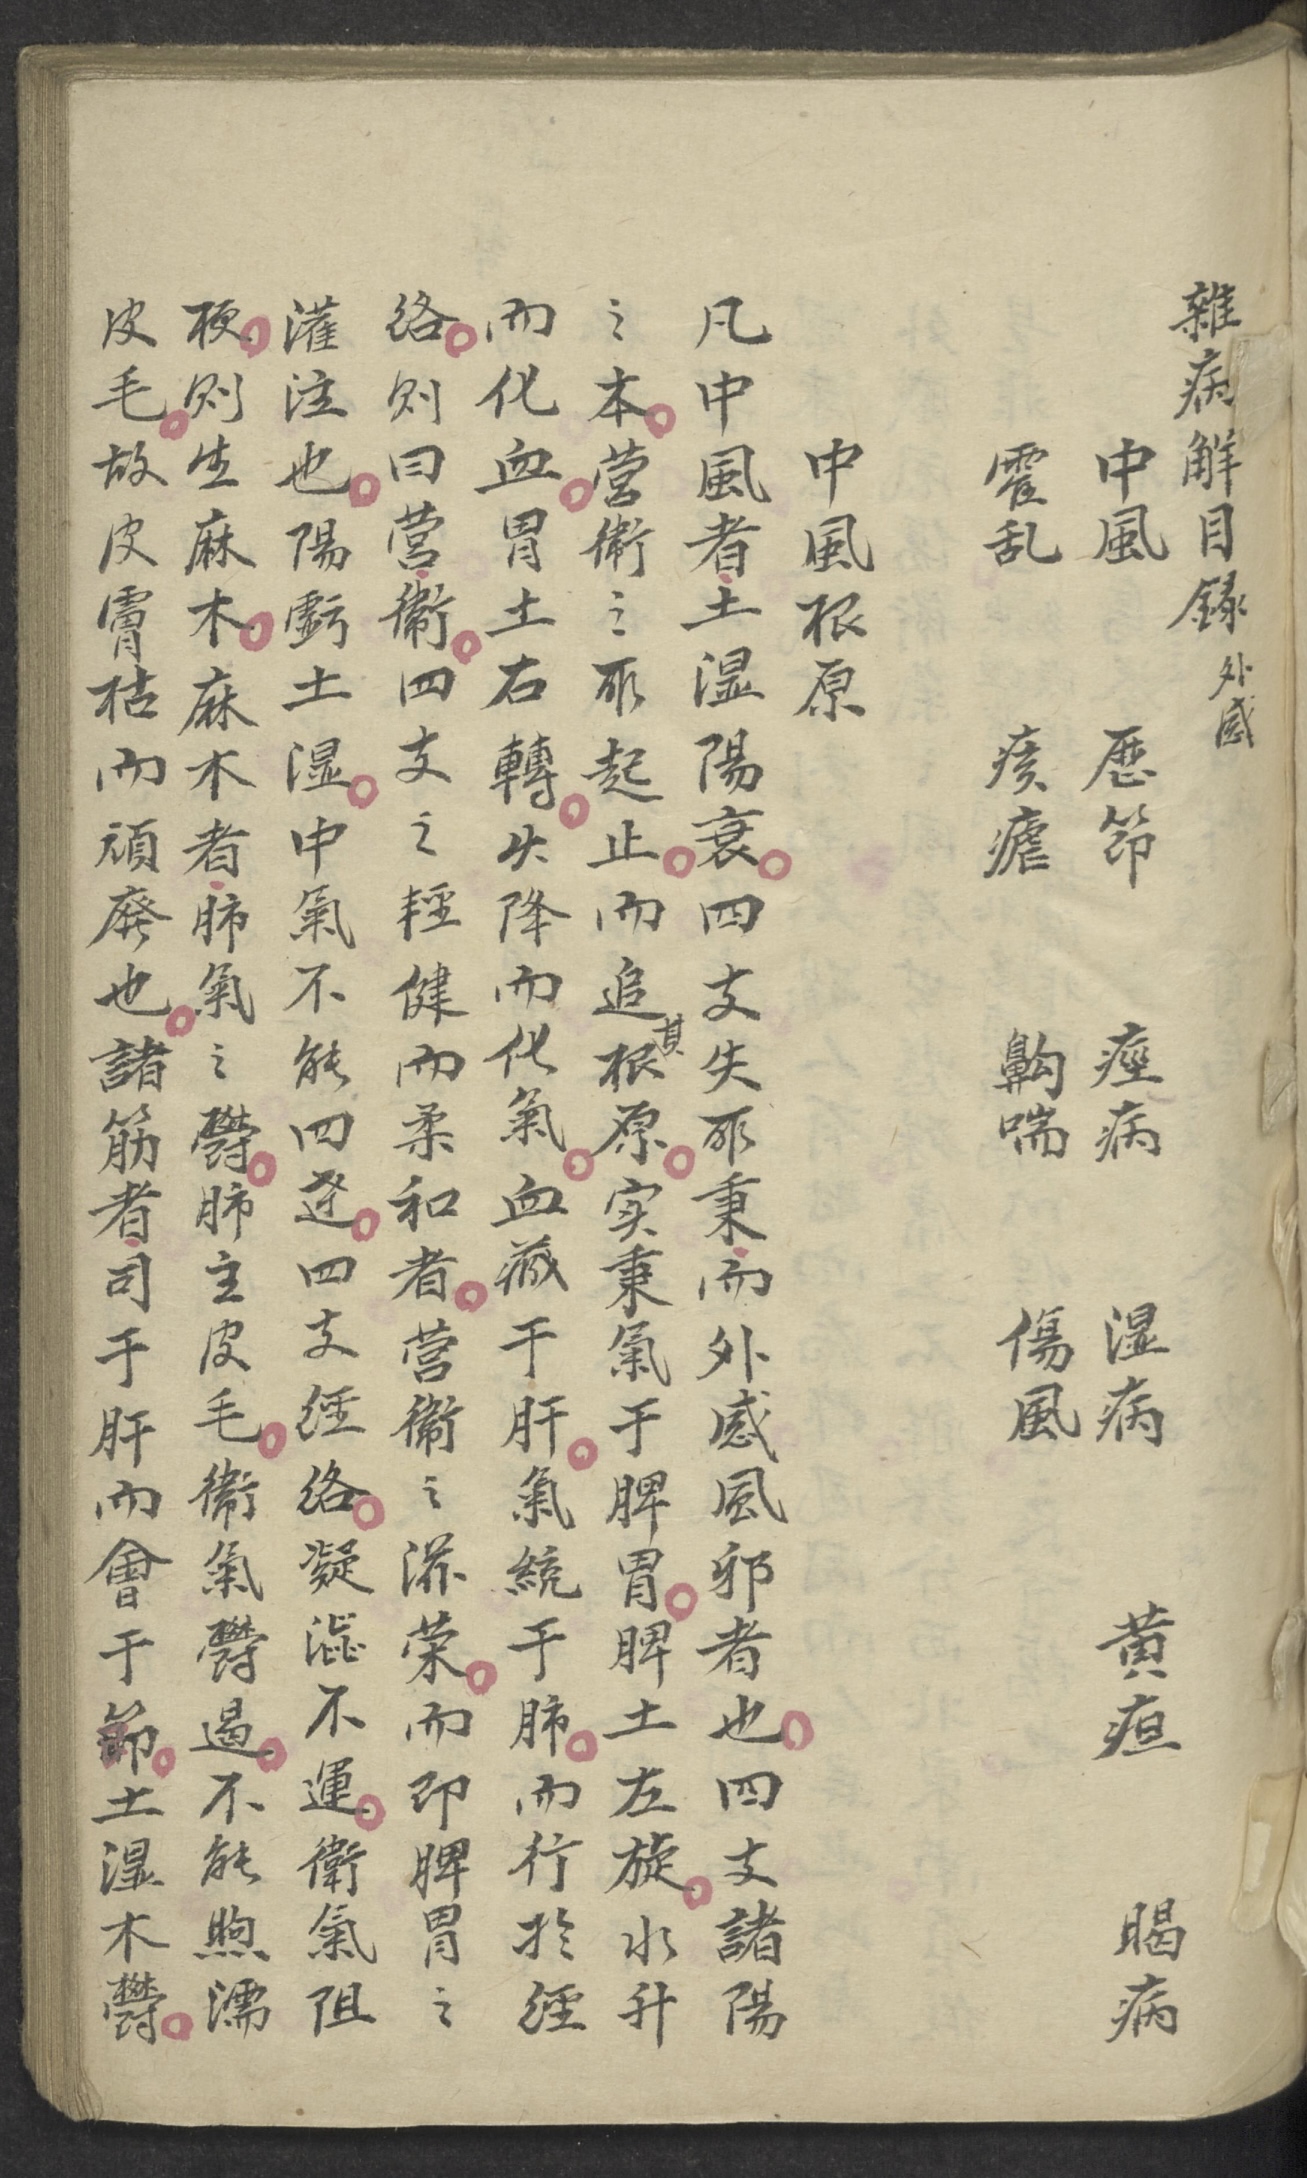 雜病解目録 外感
中風 歷節 痙病 湿病 黄疸 暍病
霍乱 痎瘧 齁喘 傷風
中風根原
凡中風者土湿陽衰四支失所秉而外感風邪者也四支諸陽
之本营衛之所起止而追其根原实秉氣于脾胃脾土左旋水升
而化血胃土右轉火降而化氣血藏于肝氣統于肺而行於經
络则曰营衛四支之輕健而柔和者营衛之滋荣而即脾胃之
灌注也陽虧土湿中氣不能四逹四支經络凝澁不運衛氣阻
梗则生麻木麻木者肺氣之欝肺主皮毛衛氣欝遏不能煦濡
皮毛故皮膚枯而頑廢也諸筋者司于肝而會于節土湿木欝